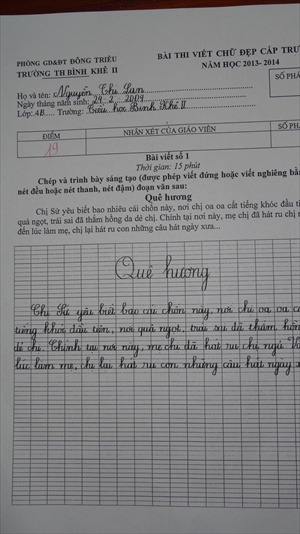 PHÒNG GD&ĐT ĐÔNG TRIỀU
TRƯỜNG TH BÌNH KHÊ II
BÀI THI VIẾT CHỮ ĐẸP CẤP TRƯ
NĂM HỌC 2013- 2014
Họ và tên: Nguyễn Thị Lan
Ngày tháng năm sinh: 29. 2. 2004
Lớp: 4B Trường: Tiểu học Bình Khê II
SỐ PHÁ
ĐIỂM
NHẬN XÉT CỦA GIÁO VIÊN
SỐ PHÁ
19
Bài viết số 1
Thời gian: 15 phút
Chép và trình bày sáng tạo (được phép viết đứng hoặc viết nghiêng bằ
nét đều hoặc nét thanh, nét đậm) đoạn văn sau:
Quê hương
Chị Sứ yêu biết bao nhiêu cái chốn này, nơi chị oa oa cất tiếng khóc đầu ti
quả ngọt, trái sai đã thắm hồng da dẻ chị. Chính tại nơi này, mẹ chị đã hát ru chị n
đến lúc làm mẹ, chị lại hát ru con những câu hát ngày xưa...
Quê hương
Chị Sứ yêu biết bao cái chốn này, nơi chị oa oa cấ
tiếng khóc đầu tiên, nơi quả ngọt, trái sai đã thắm hồn
dẻ chị. Chính tại nơi này, mẹ chị đã hát ru chị ngủ. Và
lúc làm mẹ, chị lại hát ru con những câu hát ngày x